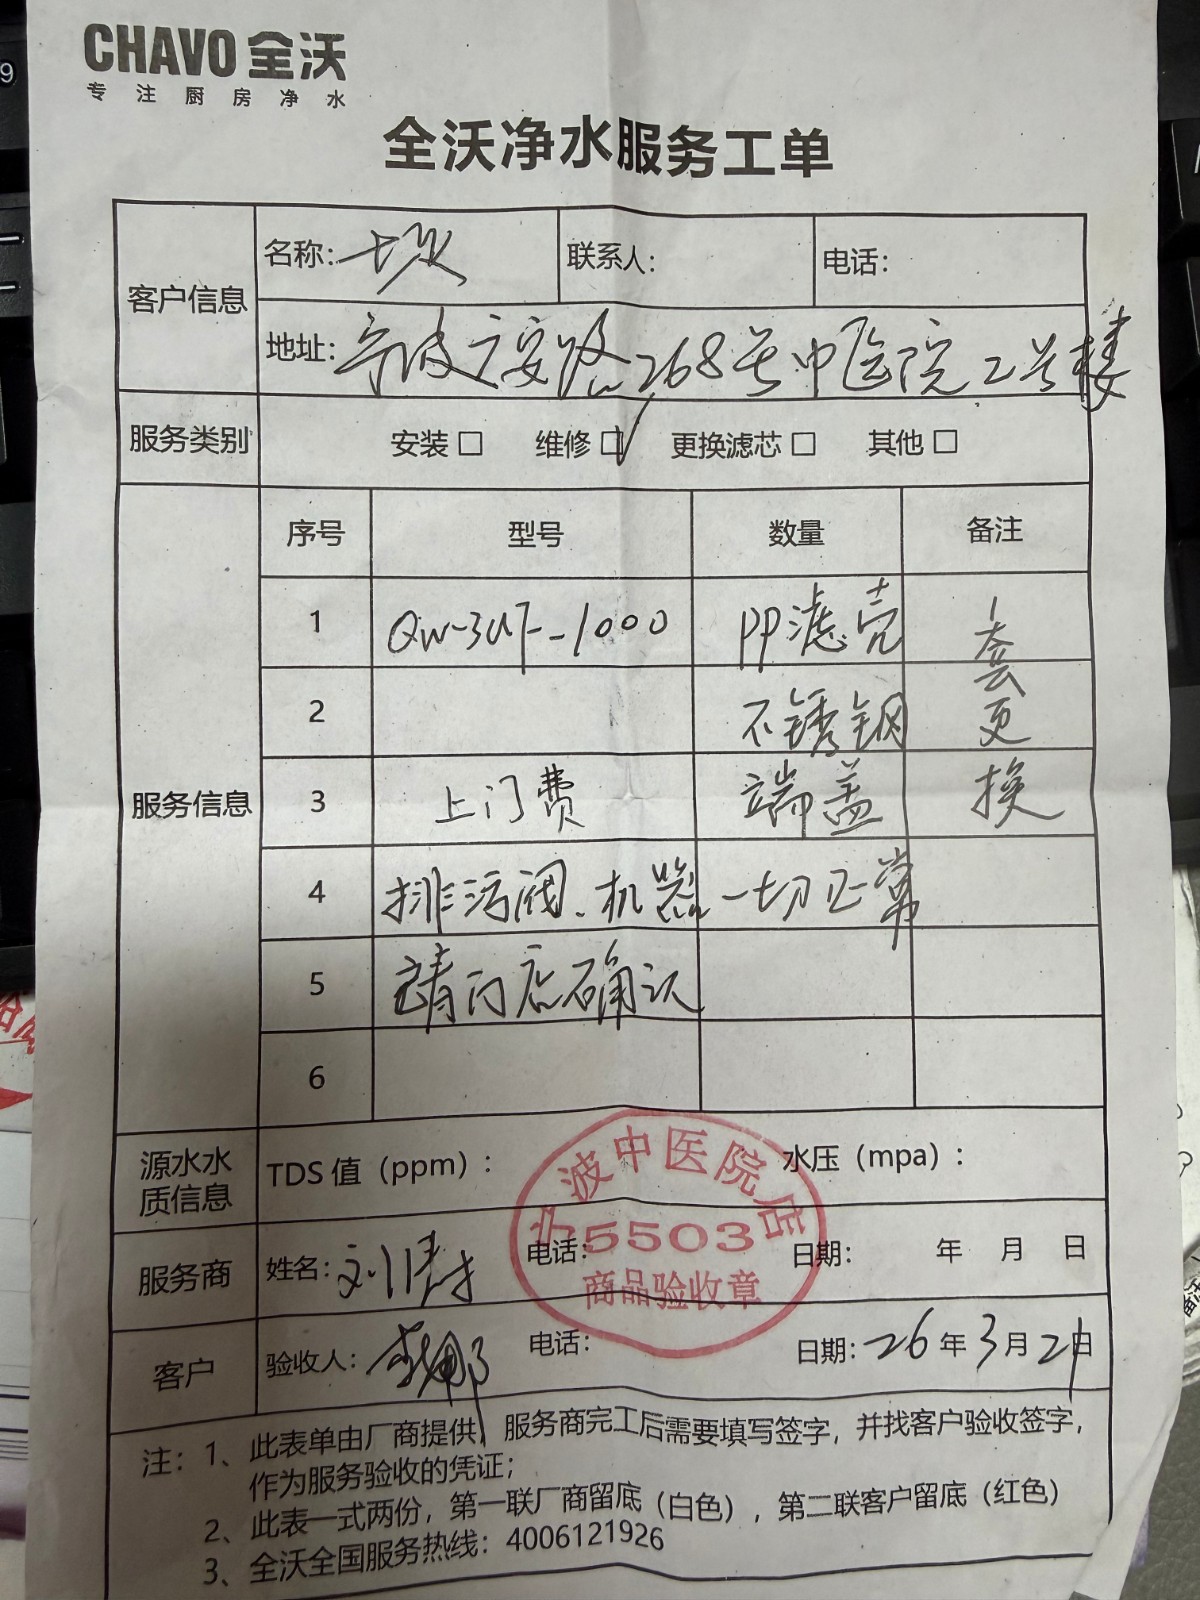 CHAVO 全沃
专注厨房净水
全沃净水服务工单
客户信息
名称:
联系人:
电话:
地址: 宁波广安路268号中医院2号楼
服务类别 安装□ 维修□√ 更换滤芯□ 其他□
服务信息
序号 型号 数量 备注
1 QW-3UF-1000 PP滤壳 一套
2 不锈钢 更
3 上门费 端盖 换
4 排污阀.机器一切正常
5 请门店确认
6
源水水质信息 TDS 值（ppm）: 水压（mpa）:
宁波中医院店
5503
商品验收章
服务商 姓名: 电话: 日期: 年 月 日
客户 验收人: 电话: 日期: 26年3月21日
注: 1、此表单由厂商提供，服务商完工后需要填写签字，并找客户验收签字，
作为服务验收的凭证;
2、此表一式两份，第一联厂商留底（白色），第二联客户留底（红色）
3、全沃全国服务热线: 4006121926